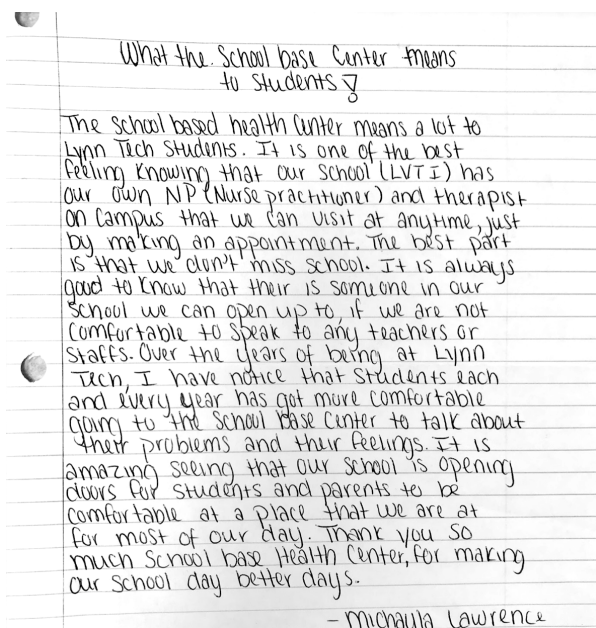 What the School base Center means
to students!
The school based health Center means a lot to
Lynn Tech Students. It is one of the best
feeling knowing that our school (LVTI) has
our own NP (Nurse practitioner) and therapist
on campus that we can visit at anytime, just
by making an appointment. The best part
is that we don't miss school. It is always
good to know that their is someone in our
school we can open up to, if we are not
comfortable to speak to any teachers or
staffs. Over the years of being at Lynn
Tech, I have notice that students each
and every year has got more comfortable
going to the School Base Center to talk about
their problems and their feelings. It is
amazing seeing that our school is opening
doors for students and parents to be
comfortable at a place that we are at
for most of our day. Thank you so
much School base Health Center, for making
our school day better days.
- Michaila Lawrence